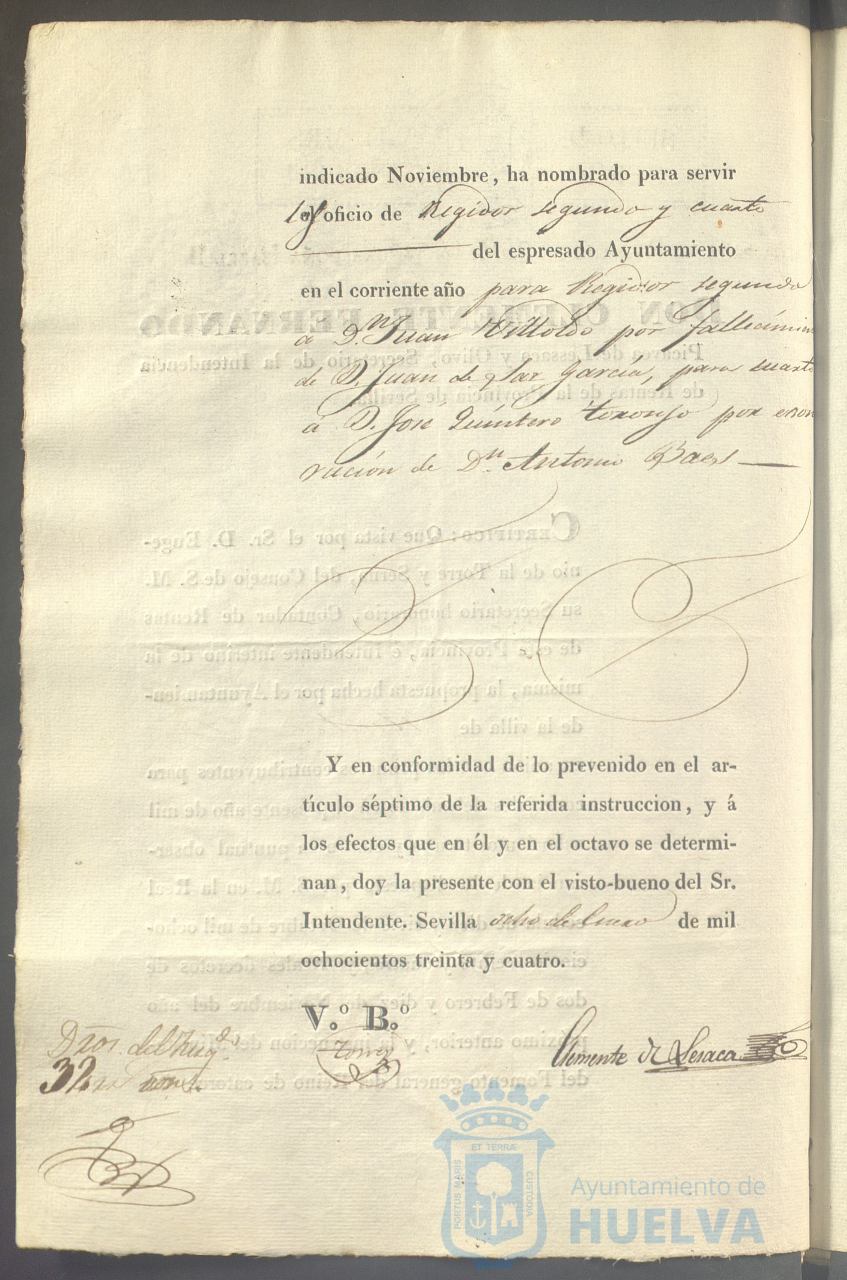 indicado Noviembre, ha nombrado para servir
los oficio de Regidor segundo y cuarto
del espresado Ayuntamiento
en el corriente año para Regidor segundo
a D.n Juan Villoldo por fallecimien
de D. Juan de Garcia, para cuarto
a D. José Quintero por exon
ración de D.n Antonio Baes
Y en conformidad de lo prevenido en el ar-
tículo séptimo de la referida instruccion, y á
los efectos que en él y en el octavo se determi-
nan, doy la presente con el visto-bueno del Sr.
Intendente. Sevilla ocho de Enero de mil
ochocientos treinta y cuatro.
V.º B.º
Torre
Clemente de Lesaca
32
ET TERRÆ
PORTUS MARIS
CUSTODIA
Ayuntamiento de
HUELVA